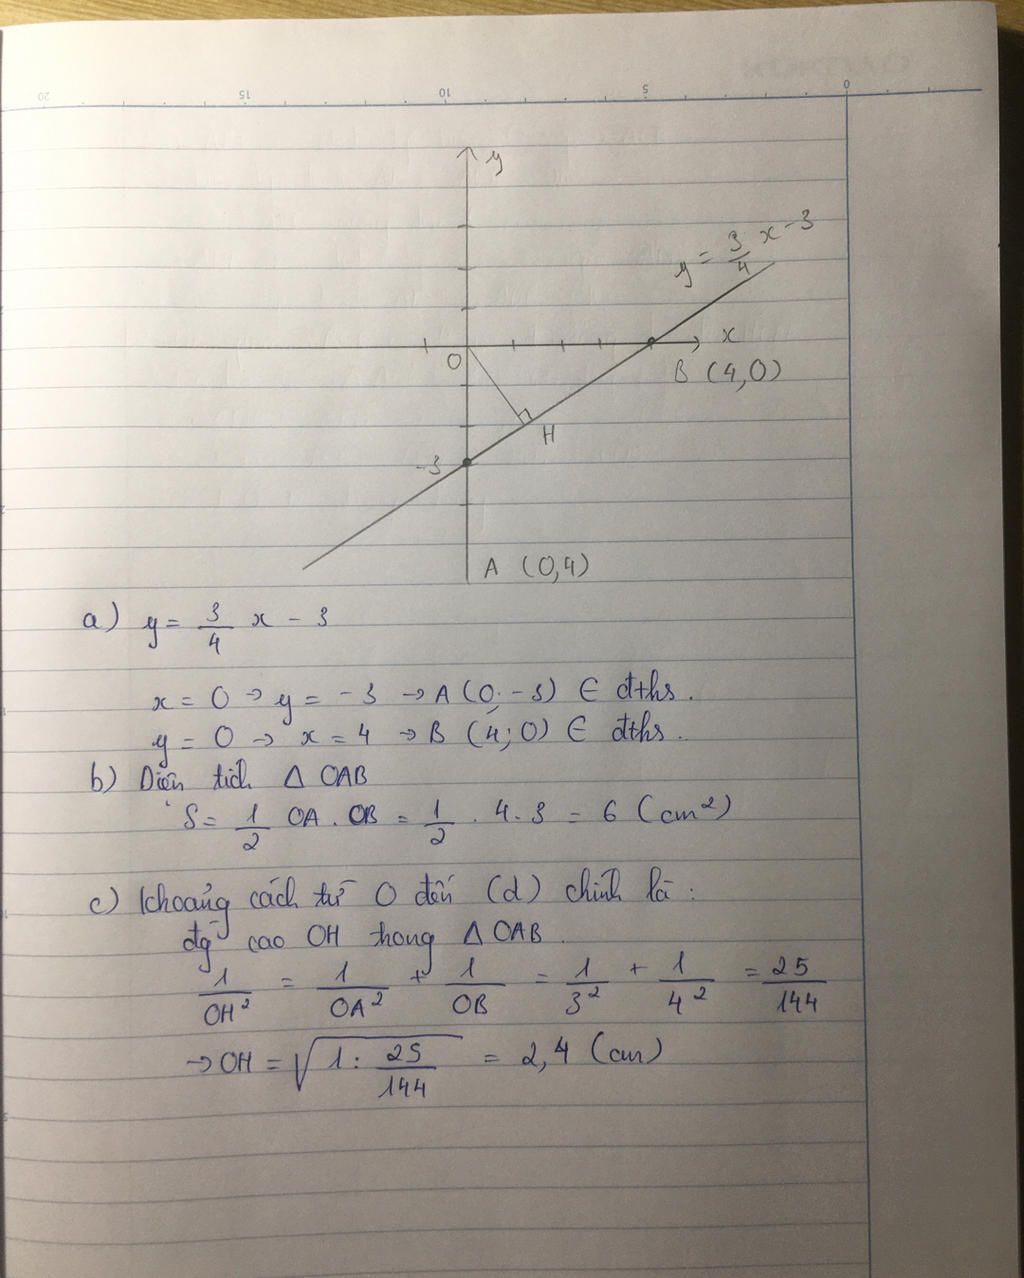 20 15 10 5 0
y
y = 3/4 x - 3
x
O
B (4,0)
H
-3
A (0,4)
a) y = 3/4 x - 3
x = 0 → y = -3 → A (0; -3) ∈ đths.
y = 0 → x = 4 → B (4; 0) ∈ đths.
b) Diện tích Δ OAB
S = 1/2 OA . OB = 1/2 . 4 . 3 = 6 (cm²)
c) Khoảng cách từ O đến (d) chính là :
đg cao OH trong Δ OAB.
1/OH² = 1/OA² + 1/OB = 1/3² + 1/4² = 25/144
→ OH = √(1 : 25/144) = 2,4 (cm)